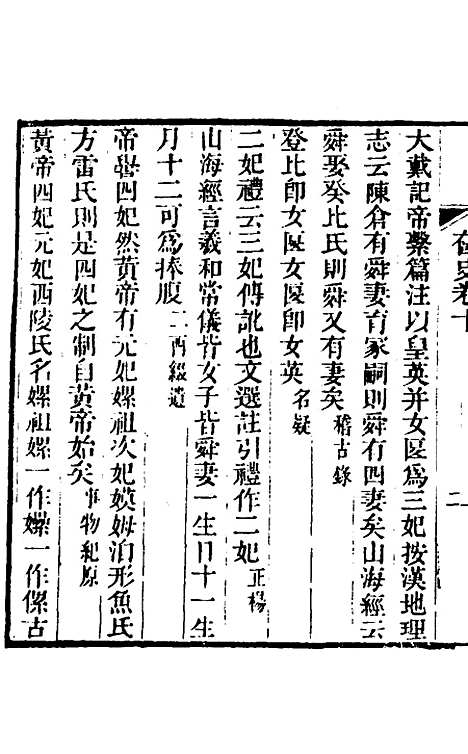 大戴記帝繫篇注以皇英并女匽爲三妃按漢地理
志云陳倉有舜妻育冢嗣則舜有四妻矣山海經云
舜娶癸比氏則舜又有妻矣稽古錄
登比卽女匽女匽卽女英名疑
二妃禮云三妃傳訛也文選註引禮作二妃正楊
山海經言羲和常儀皆女子皆舜妻一生日十一生
月十二可爲捧腹二酉綴遺
帝嚳四妃然黃帝有元妃嫘祖次妃嫫姆洎彤魚氏
方雷氏則是四妃之制自黃帝始矣事物紀原
黃帝四妃元妃西陵氏名嫘祖嫘一作嫘一作傫古
史卷十
二